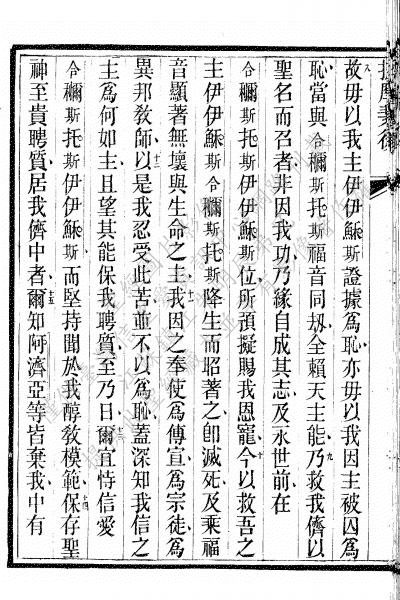 故毋以我主伊伊穌斯證據爲恥亦毋以我因主被囚爲
恥當與合穪斯托斯福音同刼全賴天主能乃救我儕以
聖名而召者非因我功乃緣自成其志及永世前在
合穪斯托斯伊伊穌斯位所預擬賜我恩寵今以救吾之
主伊伊穌斯合穪斯托斯降生而昭著之卽滅死及乘福
音顯著無壞與生命之主我因之奉使爲傳宣爲宗徒爲
異邦敎師以是我忍受此苦並不以爲恥蓋深知我信之
主爲何如主且望其能保我聘質至乃日爾宜恃信愛
合穪斯托斯伊伊穌斯而堅持聞於我醇敎模範保存聖
神至貴聘質居我儕中者爾知阿濟亞等皆棄我中有